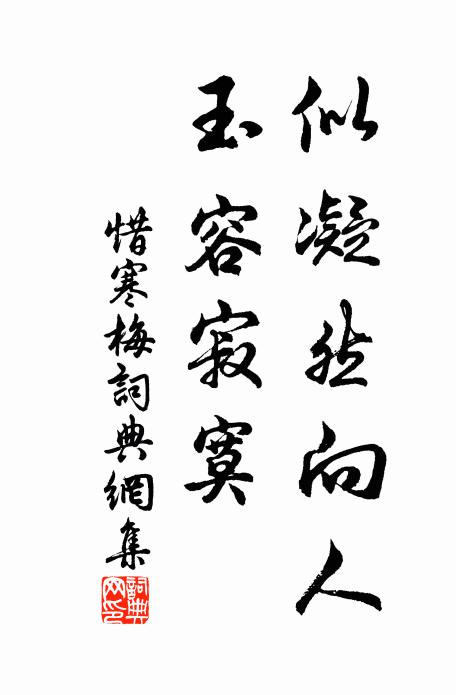 似凝愁向人
玉容寂寞
惜寒梅詞典網集
詞典
网印